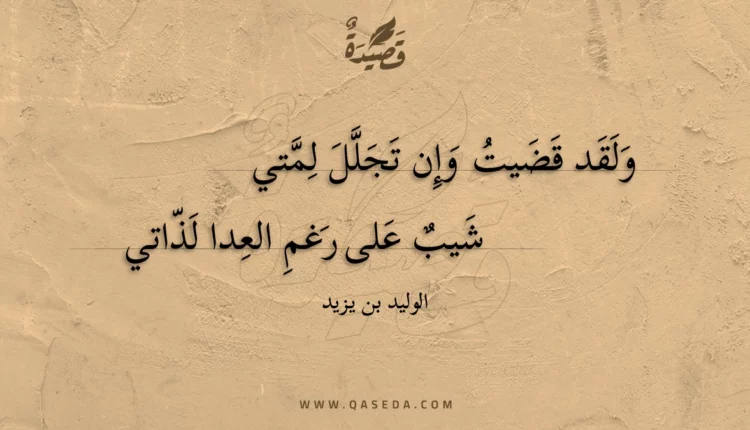 قَصِيدَةٌ
وَلَقَد قَضَيتُ وَإِن تَجَلَّلَ لِمَّتي
شَيبٌ عَلى رَغمِ العِدا لَذّاتي
الوليد بن يزيد
WWW.QASEDA.COM